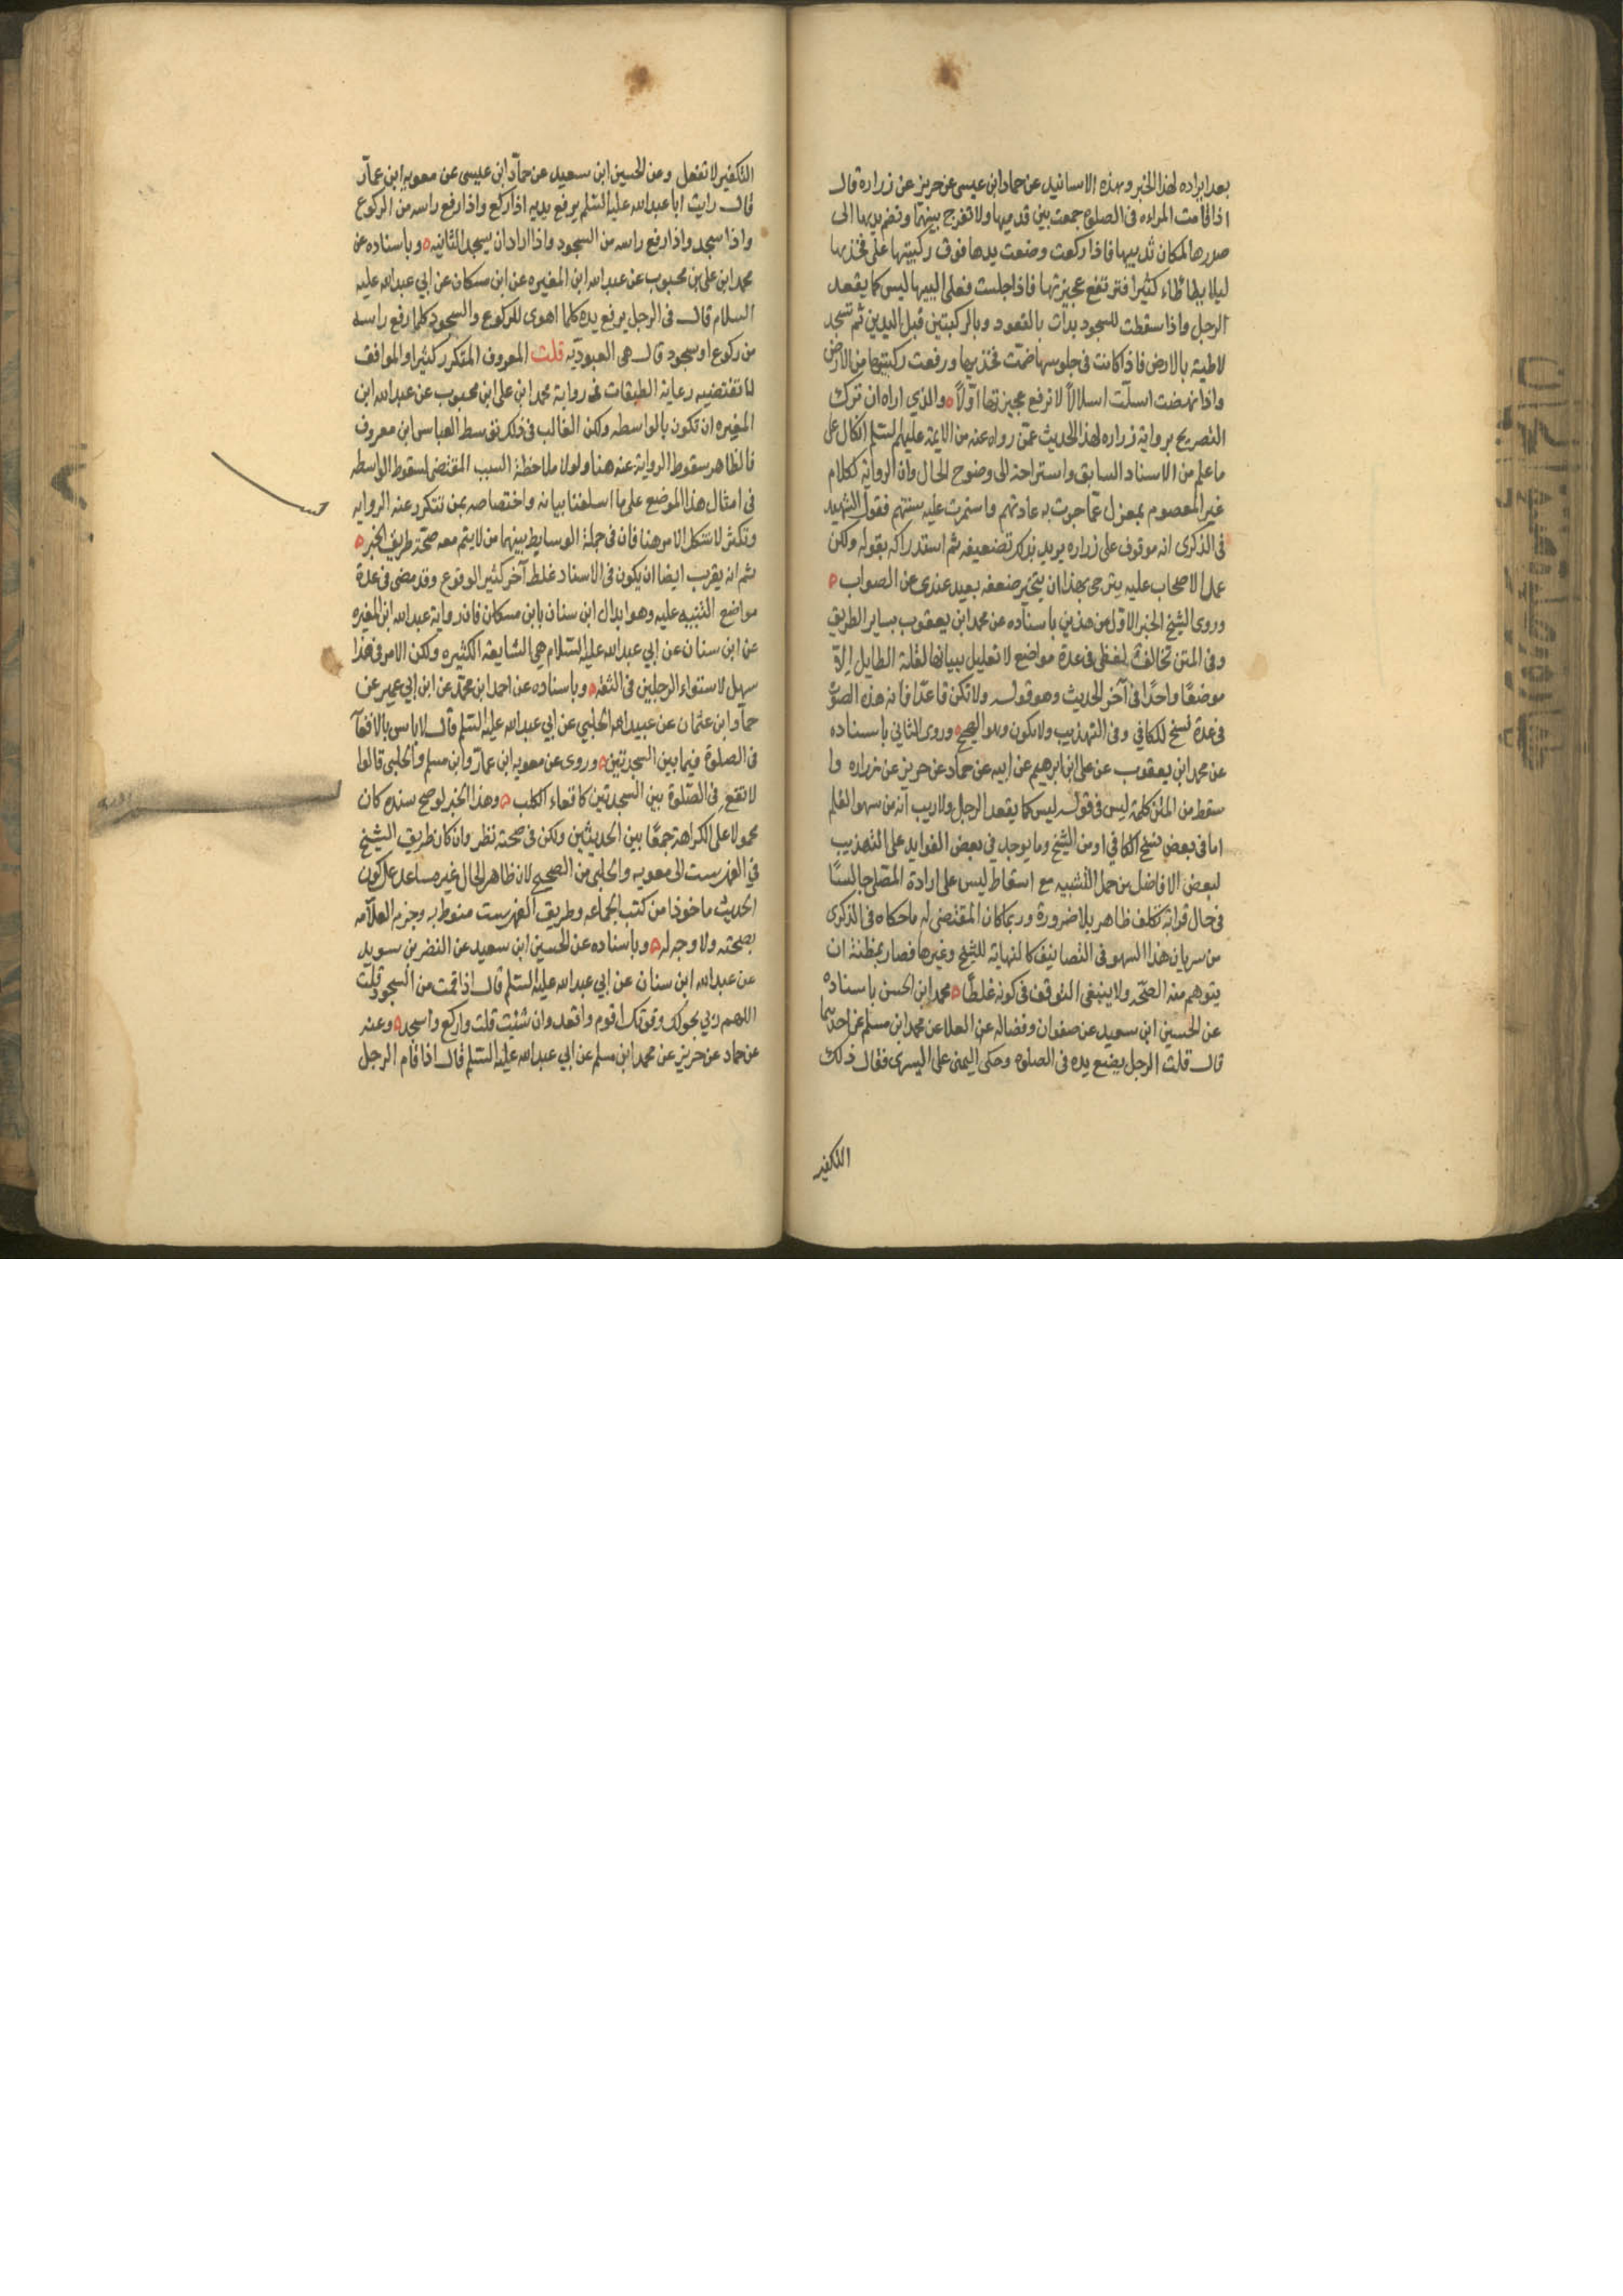 بعد ايراده لهذا الخبر وبهذه الاسانيد عن حماد ابن عيسى عن حريز عن زراره قال
اذا قامت المراه فى الصلوة جمعت بين قدميها ولا تفرج بينهما وتضم يديها الى
صدرها لمكان ثدييها فاذا ركعت وضعت يدها فوق ركبتيها على فخذيها
ليلا يطاطاء كثيرا فترتفع عجيزتها فاذا جلست فعلى اليبيها ليس كما يقعد
الرجل واذا سقطت للسجود بدات بالقعود وبالركبتين قبل اليدين ثم تسجد
لاطيه بالارض فاذا كانت فى جلوسها ضمّت فخذيها ورفعت ركبتيها من الارض
واذا نهضت انسلّت انسلالاً لا ترفع عجيزتها اوّلاً ٥ والذي اراه ان ترك
التصريح برواية زراره لهذا الحديث عمّن رواه عنه من الايمة عليهم السلم اتكال على
ما علم من الاسناد السابق واستراحة الى وضوح الحال وان الرواية لكلام
غير المعصوم بمعزل عمّا جرت به عادتهم واستمرت عليه سنتهم فقول الشهيد
فى الذكرى انه موقوف على زراره يريد بذلك تضعيفه ثم استدراكه بقوله ولكن
عمل الاصحاب عليه يترجى بهذا ان ينجبر ضعفه بعيد عندى عن الصواب ٥
وروى الشيخ الخبر الاول من هذين باسناده عن محمد ابن يعقوب بساير الطريق
وفى المتن تخالف لفظى فى عدة مواضع لا تعليل ببيانها لقلة الطايل الا
موضعًا واحدًا فى آخر الحديث وهو قوله ولا تكن قاعدًا فانه هذه الصورة
فى عدة نسخ للكافي وفى التهذيب ولا تكون وهو الصحيح ٥ وروى الثاني باسناده
عن محمد ابن يعقوب عن على ابن ابرهيم عن ابيه عن حماد عن حريز عن زراره وا
سقط من المتن كلمة ليس فى قوله ليس كما يقعد الرجل ولا ريب انه من سهو القلم
اما فى بعض نسخ الكافي او من الشيخ وما يوجد فى بعض الفوايد على التهذيب
لبعض الافاضل من حمل التشبيه مع اسقاط ليس على ارادة المصلى جالسًا
فى حال قرانه تكلف ظاهر بلا ضرورة وربما كان المقتضى له ما حكاه فى الذكرى
من سريان هذا السهو فى التصانيف كالنهاية للشيخ وغيرها فصار بمظنة ان
يتوهم منه الصحّه ولا ينبغى التوقف فى كونه غلطًا ٥ محمد ابن الحسن باسناده
عن الحسين ابن سعيد عن صفوان وفضاله عن العلا عن محمد ابن مسلم عن احدهما
قال قلت الرجل يضع يده فى الصلوة وحكى اليمنى على اليسرى فقال ذلك
التكفير
التكفير لا تفعل وعن الحسين ابن سعيد عن حمّاد ابن عيسى عن معويه ابن عمار
قال رايت ابا عبدالله عليه السّلم يرفع يديه اذا ركع واذا رفع راسه من الركوع
واذا سجد واذا رفع راسه من السجود واذا اراد ان يسجد الثانيه ٥ وباسناده عن
محمد ابن على بن محبوب عن عبدالله ابن المغيره عن ابن مسكان عن ابي عبدالله عليه
السلام قال فى الرجل يرفع يده كلما اهوى للركوع والسجود كلما رفع راسه
من ركوع او سجود قال هى العبوديّه قلت المعروف المتكرر كثيرا والموافق
لما تقتضيه رعاية الطبقات فى رواية محمد ابن على ابن محبوب عن عبدالله ابن
المغيره ان تكون بالواسطه ولكن الغالب فى ذلك توسط العباس ابن معروف
فالظاهر سقوط الرواية عنه هنا ولولا ملاحظة السبب المقتضى لسقوط الواسطه
فى امثال هذا الموضع على ما اسلفنا بيانه واختصاصه بمن تتكرر عنه الروايه
وتكثر لاشكل الامر هنا فان فى جملة الوسايط بينهما من لا يتم معه صحّة طريق الخبر ٥
ثم انه يقرب ايضا ان يكون فى الاسناد غلط آخر كثير الوقوع وقد مضى فى عدة
مواضع التنبيه عليه وهو ابدال ابن سنان بابن مسكان فان رواية عبدالله ابن المغيره
عن ابن سنان عن ابي عبدالله عليه السّلام هى الشايعة الكثيره ولكن الامر فى هذا
سهل لاستواء الرجلين فى الثقة ٥ وباسناده عن احمد ابن محمّد عن ابن ابي عمير عن
حماد ابن عثمان عن عبيدالله الحلبي عن ابي عبدالله عليه السّلم قال لا باس بالاقعآ
فى الصلوة فيما بين السجدتين ٥ وروى عن معويه ابن عمار وابن مسلم والحلبى قالوا
لا تقع فى الصّلوة بين السجدتين كاقعاء الكلب ٥ وهذا الخبر لو صح سنده كان
محمولا على الكراهة جمعًا بين الحديثين ولكن فى صحته نظر وان كان طريق الشيخ
في الفهرست الى معويه والحلبى من الصحيح لان ظاهر الحال غير مساعد على كون
الحديث ماخوذا من كتب الجماعه وطريق الفهرست منوط به وجزم العلاّمه
بصحته ولا وجه له ٥ وباسناده عن الحسين ابن سعيد عن النضر بن سويد
عن عبدالله ابن سنان عن ابي عبدالله عليه السّلم قال اذا قمت من السجود قلت
اللهم ربي بحولك وقوتك اقوم واقعد وان شئت قلت واركع واسجد ٥ وعنه
عن حماد عن حريز عن محمد ابن مسلم عن ابي عبدالله عليه السّلم قال اذا قام الرجل